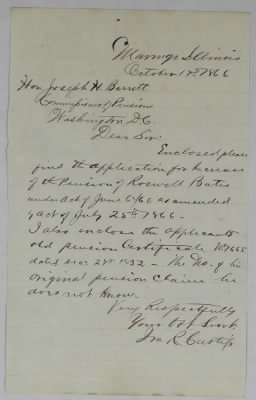 Marengo Illinois
October 17th 1866
Hon Joseph H. Barrett
Commissioner of Pensions
Washington D.C.
Dear Sir:
Enclosed please
find the application for Increase
of the Pension of Roswell Bates
under Act of June 6/66 as amended
by act of July 25th 1866 -
I also enclose the applicants
old pension Certificate
dated 27th 1832 - The No. of his
original pension claim he
does not know.
Very Respectfully
Your Obt Servt
Ira R. Curtiss